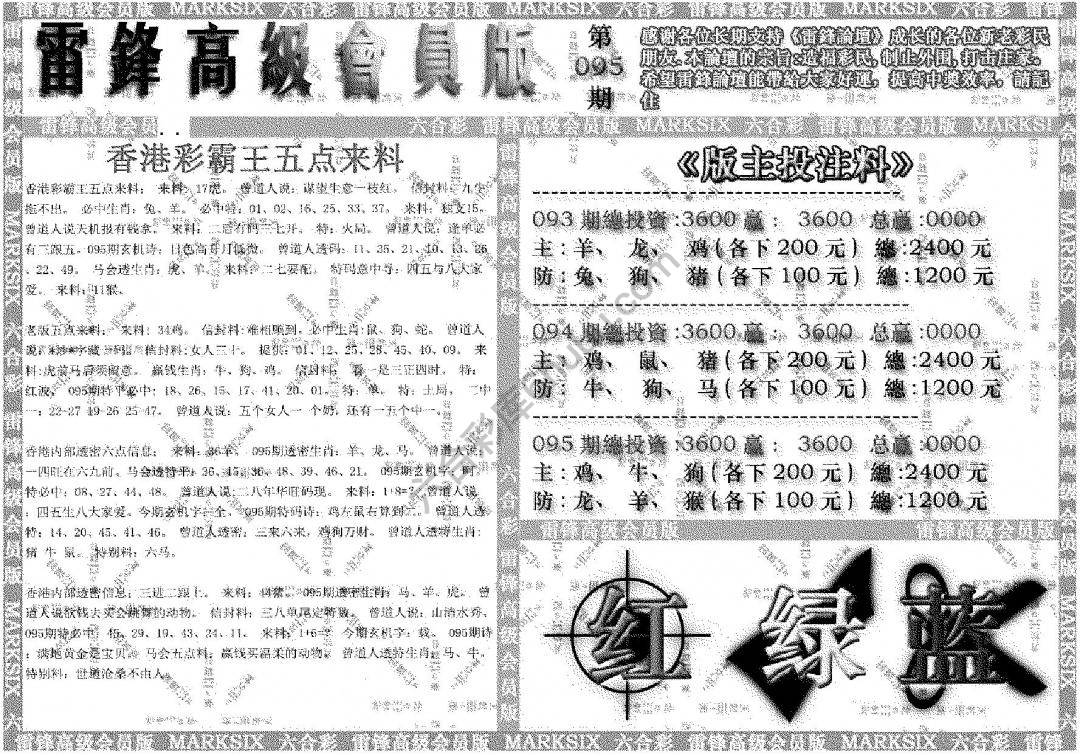 雷锋高级会员版 MARKSIX 六合彩 雷锋高级会员版 MARKSIX 六合彩 雷锋高级会员版 MARKSIX 六合彩
雷鋒高級會員版
第
095
期
感谢各位长期支持《雷鋒論壇》成长的各位新老彩民
朋友.本論壇的宗旨:造福彩民,制止外围,打击庄家.
希望雷鋒論壇能带给大家好运，提高中奖效率，請記
住
雷锋高级会员
六合彩 雷锋高级会员版 MARKSIX 六合彩 雷锋高级会员版 MARKSI
香港彩霸王五点来料
香港彩霸王五点来料： 来料：17虎。 曾道人说：谋望生意一枝红。 信封料：九牛
拖不出。 必中生肖：兔、羊。 必中特：01、02、16、25、33、37。 来料：独支15。
曾道人说天机报有钱拿。 来料：二启有码三七开。 特：火局。 曾道人说：逢单必
有三跟五。095期玄机诗：日色高升月低微。 曾道人透码：11、35、21、10、13、26
、22、49。 马会透生肖：虎、羊。 来料：二七要配。 特码意中寻：四五与八大家
爱。 来料：11猴。
老版五点来料： 来料：34鸡。 信封料：难相顾到。必中生肖：鼠、狗、蛇。 曾道人
信封料:女人三十。 提供：01、12、25、28、45、40、09。 来
料:虎前马后须留意。 赢钱生肖：牛、狗、鸡。 信封料： 看一是三正四时。 特：
红波。 095期特平必中：18、26、15、17、41、20、01。 特：单。 特：土局。 二中
一：22-27 49-26 25-47。 曾道人说：五个女人一 个奶，还有一五个中一。
香港内部透密六点信息： 来料：36羊。 095期透密生肖：羊、龙、马。 曾道人说：
一四旺在六九前。马会透特平：36、45、36、48、39、46、21。 095期玄机字：
特必中：08、27、44、48。 曾道人说:二八年华旺码现。 来料：1+8=? 曾道人说
：四五生八大家爱。今期玄机字：全。 095期特码诗：鸡左鼠右算到二。 曾道人透
特：14、20、45、41、46。 曾道人透密：三来六来，鸡狗万财。 曾道人透特生肖：
猪 牛 鼠。 特别料：六马。
香港内部透密信息：三进二跟上。 来料： 095期透密生肖：马、羊、虎。 曾
道人说欲钱去买会跳舞的动物。 信封料：三八单尾定特数。 曾道人说：山清水秀。
095期特必中：45、29、19、43、24、11。 来料：1+6=? 今期玄机字：载。 095期诗
：满地黄金是宝贝。马会五点料：赢钱买温柔的动物。 曾道人透特生肖：马、牛。
特别料：世道沧桑不由人。
《版主投注料》
093 期總投資:3600 赢： 3600 总赢:0000
主：羊、 龙、 鸡(各下 200 元) 總:2400 元
防：兔、 狗、 猪(各下 100 元) 總:1200 元
094 期總投資:3600 赢： 3600 总赢:0000
主：鸡、 鼠、 猪(各下 200 元) 總:2400 元
防：牛、 狗、 马(各下 100 元) 總:1200 元
095 期總投資:3600 赢： 3600 总赢:0000
主：鸡、 牛、 狗(各下 200 元) 總:2400 元
防：龙、 羊、 猴(各下 100 元) 總:1200 元
雷锋高级会员版
雷锋高级会员版
红 绿 蓝
雷锋高级会员版 MARKSIX 六合彩 雷锋高级会员版 MARKSIX 六合彩 雷锋高级会员版 MARKSIX 六合彩